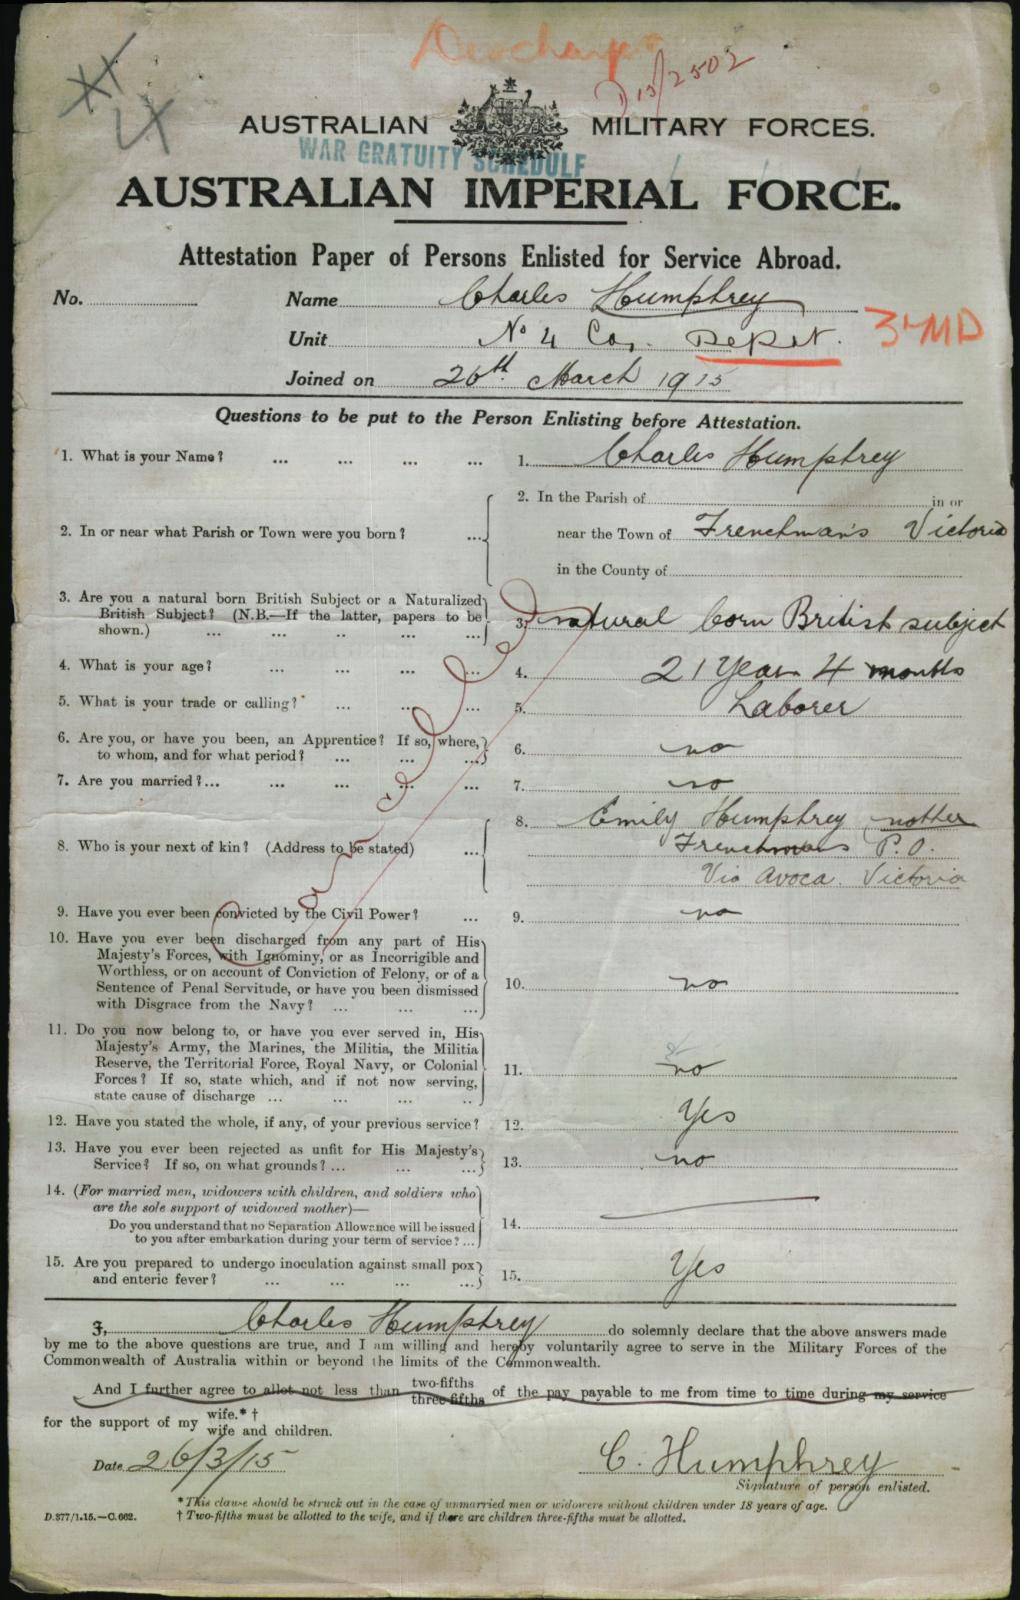 D13/2502
AUSTRALIAN MILITARY FORCES.
WAR GRATUITY SCHEDULE
AUSTRALIAN IMPERIAL FORCE.
Attestation Paper of Persons Enlisted for Service Abroad.
No. Name Charles Humphrey
Unit No 4 Coy. Depot. 3rd MD
Joined on 26th March 1915
Questions to be put to the Person Enlisting before Attestation.
1. What is your Name? ... ... ... ... 1. Charles Humphrey
2. In the Parish of in or
2. In or near what Parish or Town were you born? ... near the Town of Frenchman's Victoria
in the County of
3. Are you a natural born British Subject or a Naturalized
British Subject? (N.B.—If the latter, papers to be 3. natural born British subject
shown.) ... ... ... ... ...
4. What is your age? ... ... ... ... 4. 21 Years 4 months
5. What is your trade or calling? ... ... ... 5. Laborer
6. Are you, or have you been, an Apprentice? If so, where,
to whom, and for what period? ... ... ... 6. no
7. Are you married? ... ... ... ... 7. no
8. Emily Humphrey mother
8. Who is your next of kin? (Address to be stated) ... Frenchmans P.O.
Via Avoca. Victoria
Cancelled
9. Have you ever been convicted by the Civil Power? ... 9. no
10. Have you ever been discharged from any part of His
Majesty's Forces, with Ignominy, or as Incorrigible and
Worthless, or on account of Conviction of Felony, or of a
Sentence of Penal Servitude, or have you been dismissed 10. no
with Disgrace from the Navy? ... ... ...
11. Do you now belong to, or have you ever served in, His
Majesty's Army, the Marines, the Militia, the Militia
Reserve, the Territorial Force, Royal Navy, or Colonial 11. no
Forces? If so, state which, and if not now serving,
state cause of discharge ... ... ... ..
12. Have you stated the whole, if any, of your previous service? 12. Yes
13. Have you ever been rejected as unfit for His Majesty's
Service? If so, on what grounds? ... ... ... 13. no
14. (For married men, widowers with children, and soldiers who
are the sole support of widowed mother)—
Do you understand that no Separation Allowance will be issued 14.
to you after embarkation during your term of service? ...
15. Are you prepared to undergo inoculation against small pox
and enteric fever? ... ... ... ... 15. Yes
I, Charles Humphrey do solemnly declare that the above answers made
by me to the above questions are true, and I am willing and hereby voluntarily agree to serve in the Military Forces of the
Commonwealth of Australia within or beyond the limits of the Commonwealth.
And I further agree to allot not less than two-fifths three-fifths of the pay payable to me from time to time during my service
for the support of my wife.* † wife and children.
Date 26/3/15 C. Humphrey
Signature of person enlisted.
* This clause should be struck out in the case of unmarried men or widowers without children under 18 years of age.
D.377/1.15.—C.662. † Two-fifths must be allotted to the wife, and if there are children three-fifths must be allotted.